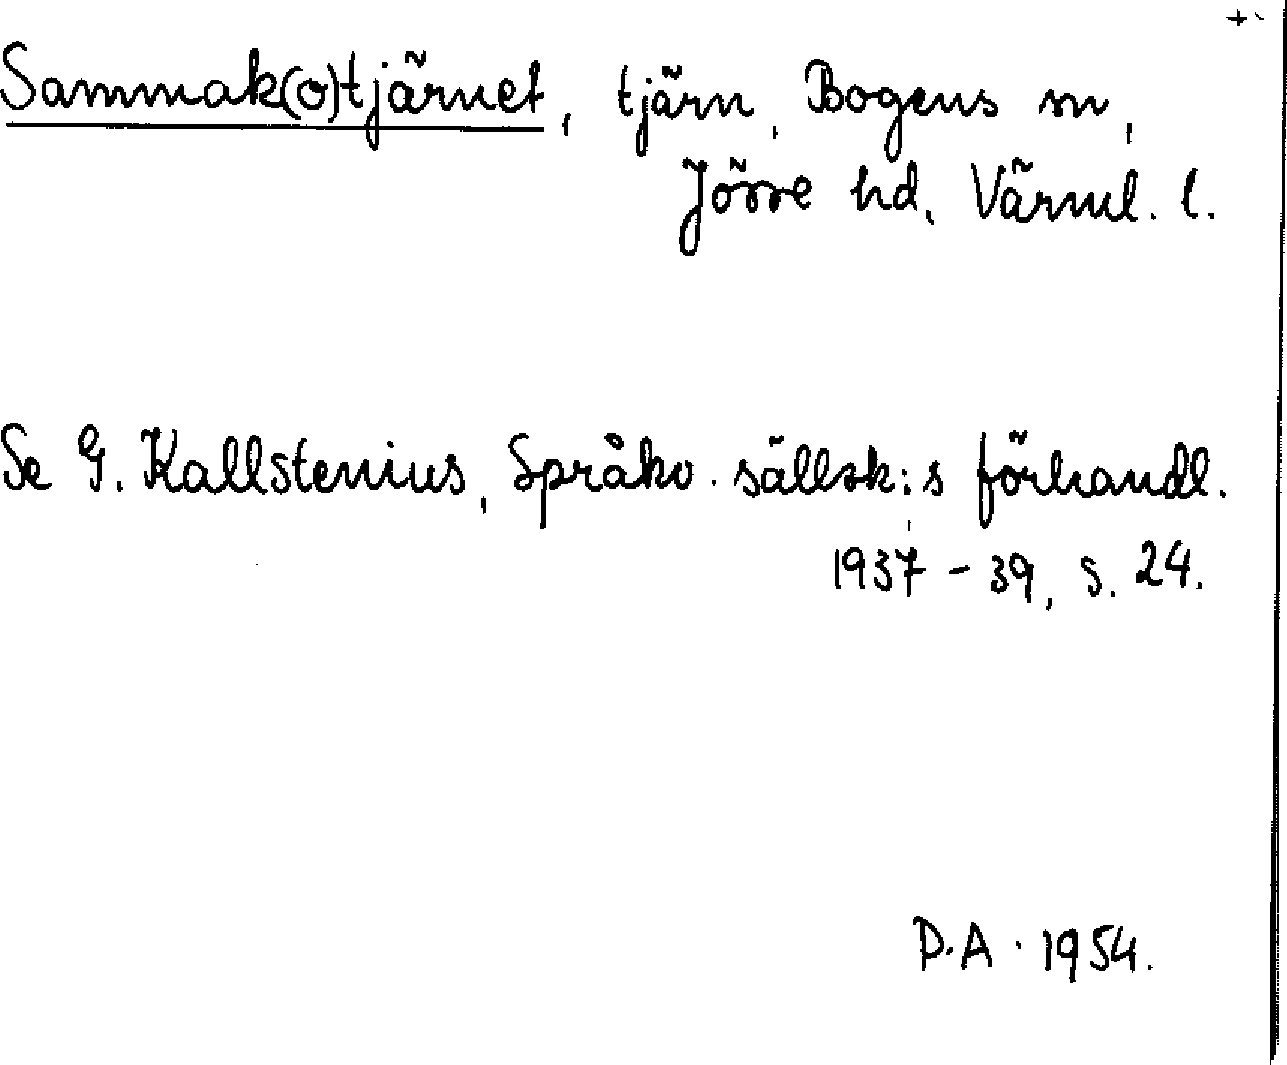 Sammak(o)tjärnet, tjärn, Bogens sn,
Jösse hd, Värml. l.
Se G. Kallstenius, Språkv. sällsk:s förhandl.
1937-39, s. 24.
P.A. 1954.